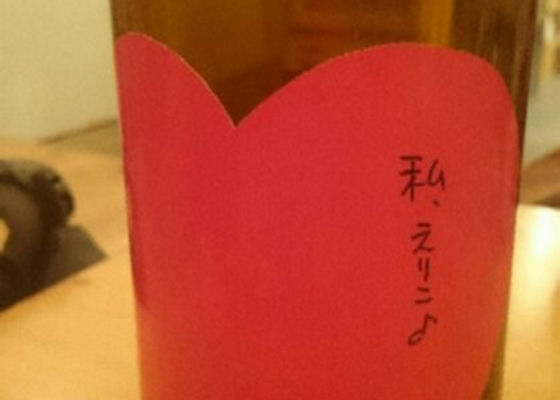 私、えりこ♪